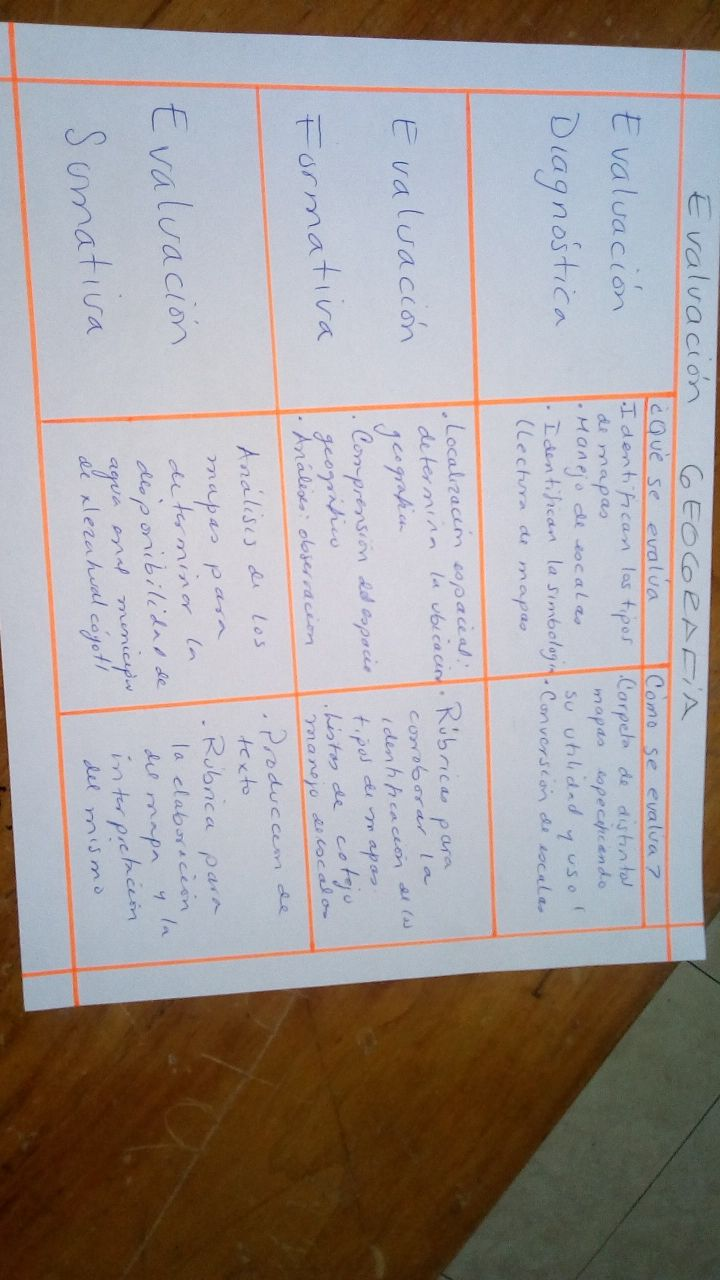 Evaluación GEOGRAFIA
¿Qué se evalúa
Cómo se evalua?
Evaluación
Diagnóstica
. Identifican los tipos
de mapas
. Manejo de escalas
. Identifican la simbologia
(Lectura de mapas
. Carpeta de distintos
mapas especificando
su utilidad y uso
. Conversión de escalas
Evaluación
Formativa
. Localización espacial:
determina la ubicación
geografica
. Comprensión del espacio
geográfico
. Análisis: observacion
. Rúbricas para
corroborar la
identificación de los
tipos de mapas.
. Listas de cotejo
manejo de escalas
Evaluación
Sumativa
Análisis de los
mapas para
determinar la
disponibilidad de
agua en el municipio
de Nezahualcóyotl
. Produccion de
texto
. Rúbrica para
la elaboración
del mapa y la
interpretación
del mismo